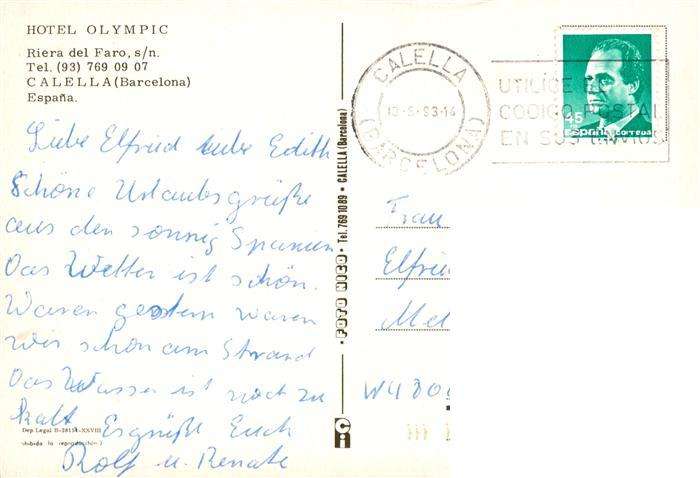 HOTEL OLYMPIC
Riera del Faro, s/n.
Tel. (93) 769 09 07
CALELLA (Barcelona)
España.
Liebe Elfried liebe Edith
Schöne Urlaubsgrüße
aus den sonnig Spanien
Das Wetter ist schön.
Waren gestern waren
wir schön am Strand
Das Wasser ist noch zu
kalt Es grüßt Euch
Rolf u. Renate
Dep Legal B-28151-XXVIII
ohibida la reproducción)
FOTO RICO • Tel. 769 10 89 • CALELLA (Barcelona)
Ci
CALELLA
(BARCELONA)
UTILICE EL
CODIGO POSTAL
EN SUS ENVIOS
45
España correos
Frau
Elfried
W4800